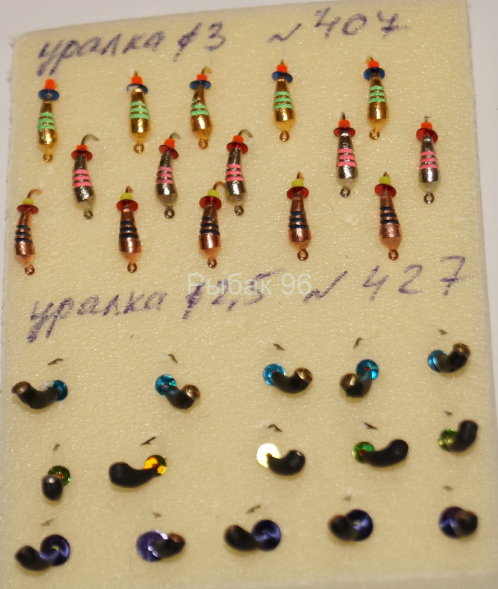 уралка ф3 №407
Рыбак 96
уралка ф2,5 №427